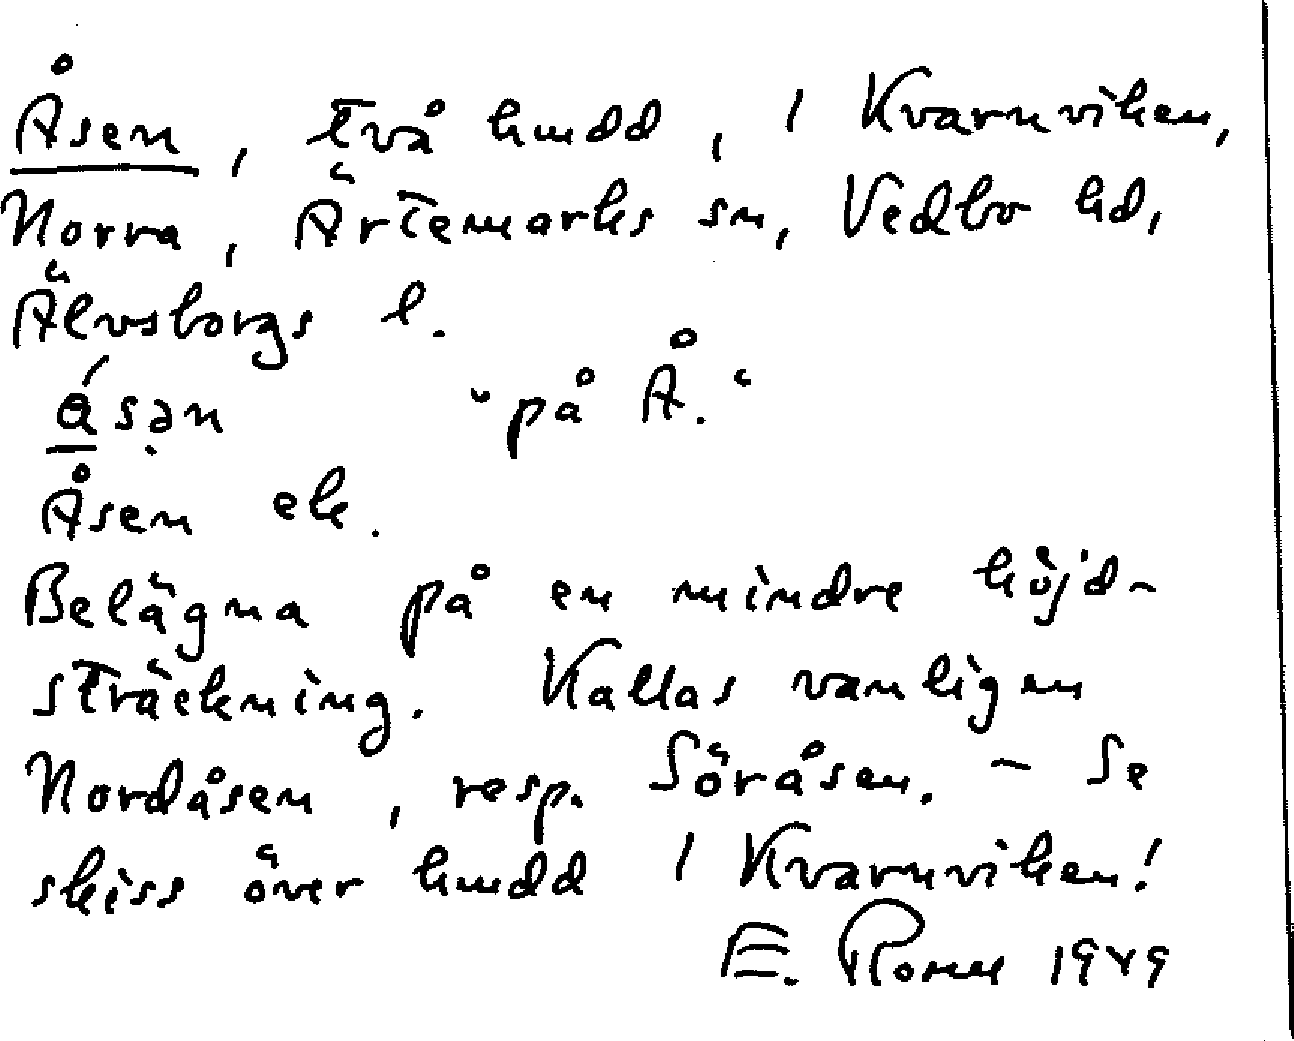 Åsen, två hmdd, i Kvarnviken,
Norra, Ärtemarks sn, Vedbo hd,
Älvsborgs l.
ásən "på Å."
Åsen ek.
Belägna på en mindre höjd-
sträckning. Kallas vanligen
Nordåsen, resp. Söråsen. - Se
skiss över hmdd i Kvarnviken!
E. 1949